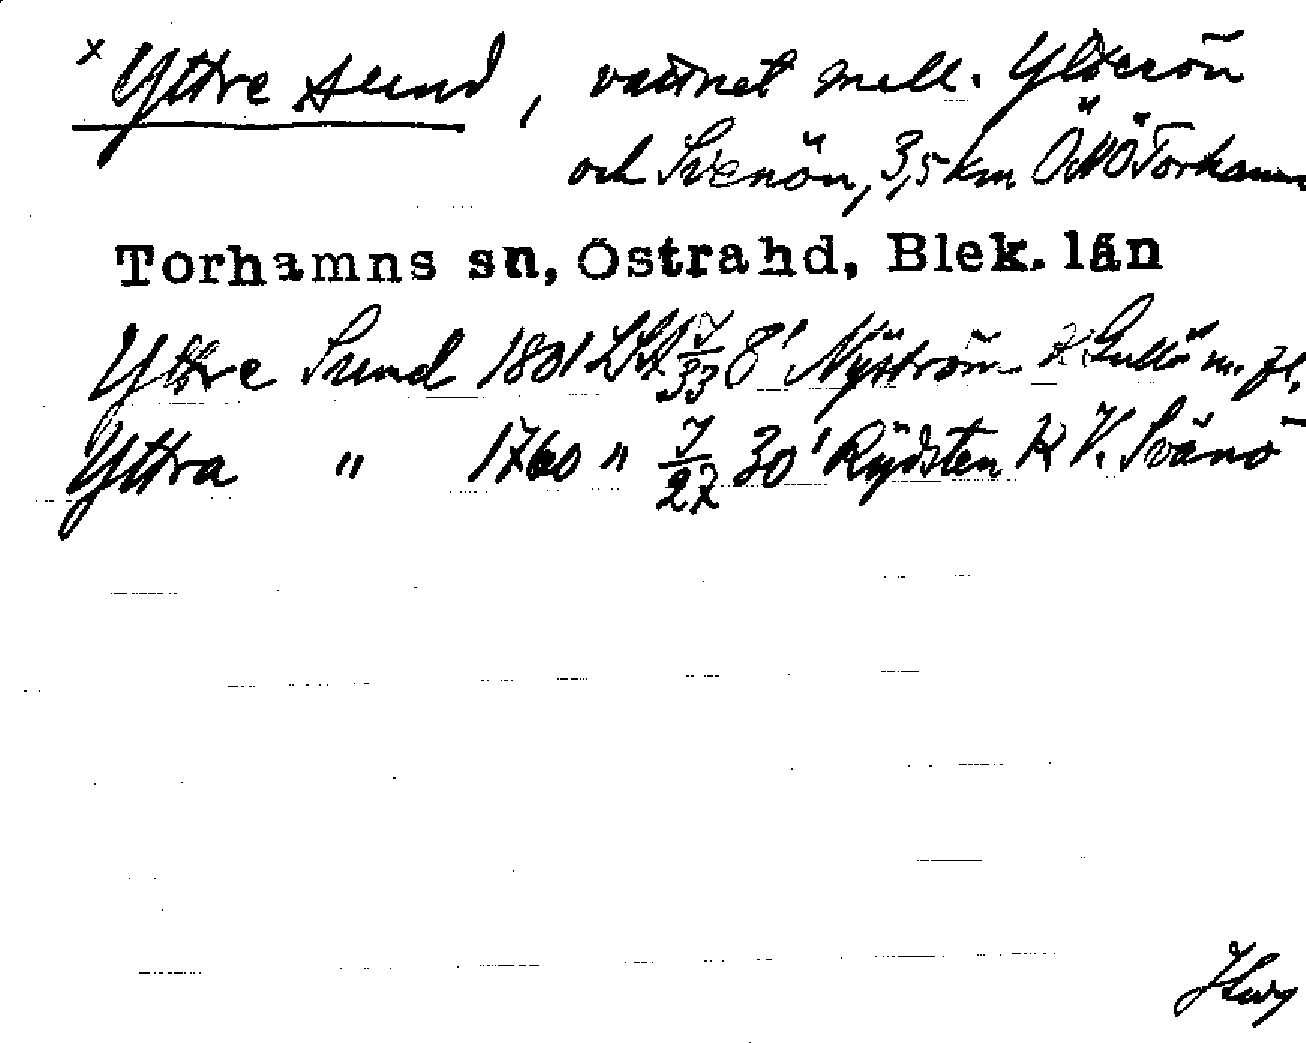 x Yttre sund, vattnet mell. Ytterön
och Svenön, 3,5 km ÖNÖ Torhamn
Torhamns sn, Östra hd, Blek. län
Yttre Sund 1801 LSA 7/33 8' Nyström K Gullö m. fl.
Yttra " 1760 " 7/27 30' Rydsten K V. Svänö